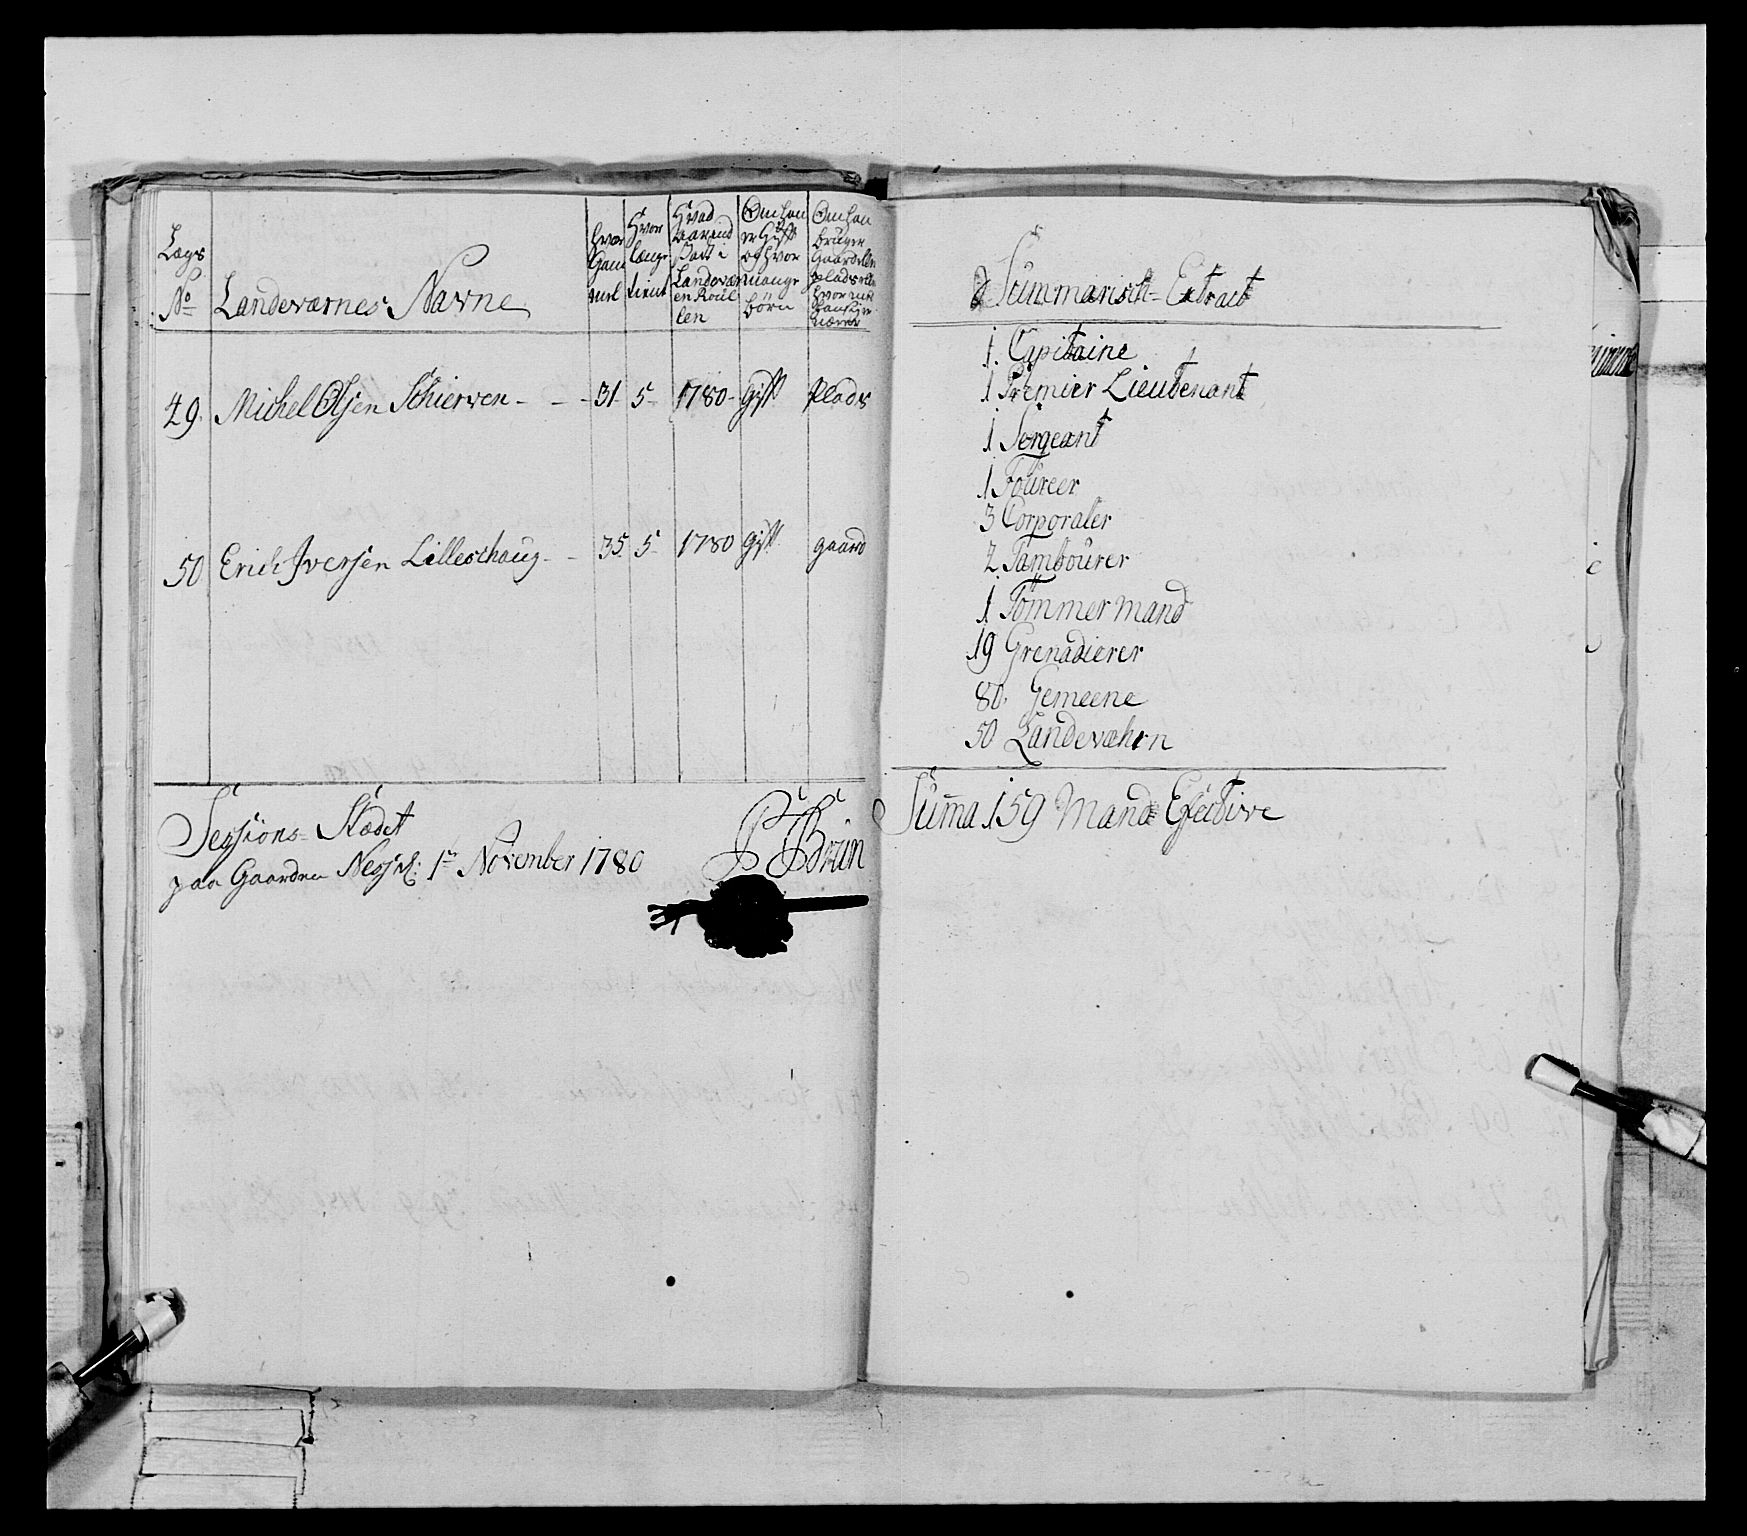 Lægs No
Landeværnes Navne
Hvor Gammel
Hvor længe tient
Hvad Aar end Sat i Landevær en Roullen
Om han er Gift og hvor mange børn
Om han bruger Gaard eller plads eller hvor
49. Michel Olsen Schierven - - - 31 5 1780 Gift Plads
50 Erich Iversen Lilleschaug - - 35 5 1780 Gift gaard
Sessions-Stædet
paa Gaarden Nes 1te November 1780
Brün
Summarisch-Extract
1. Capitaine
1 Premier Lieutenant
1 Sergeant
1 Foureer
3 Corporaler
2 Tambourer
1 Tömmermand
19 Grenadierer
80. Gemeene
50 Landevæhrn
Summa 159 Mand Efective